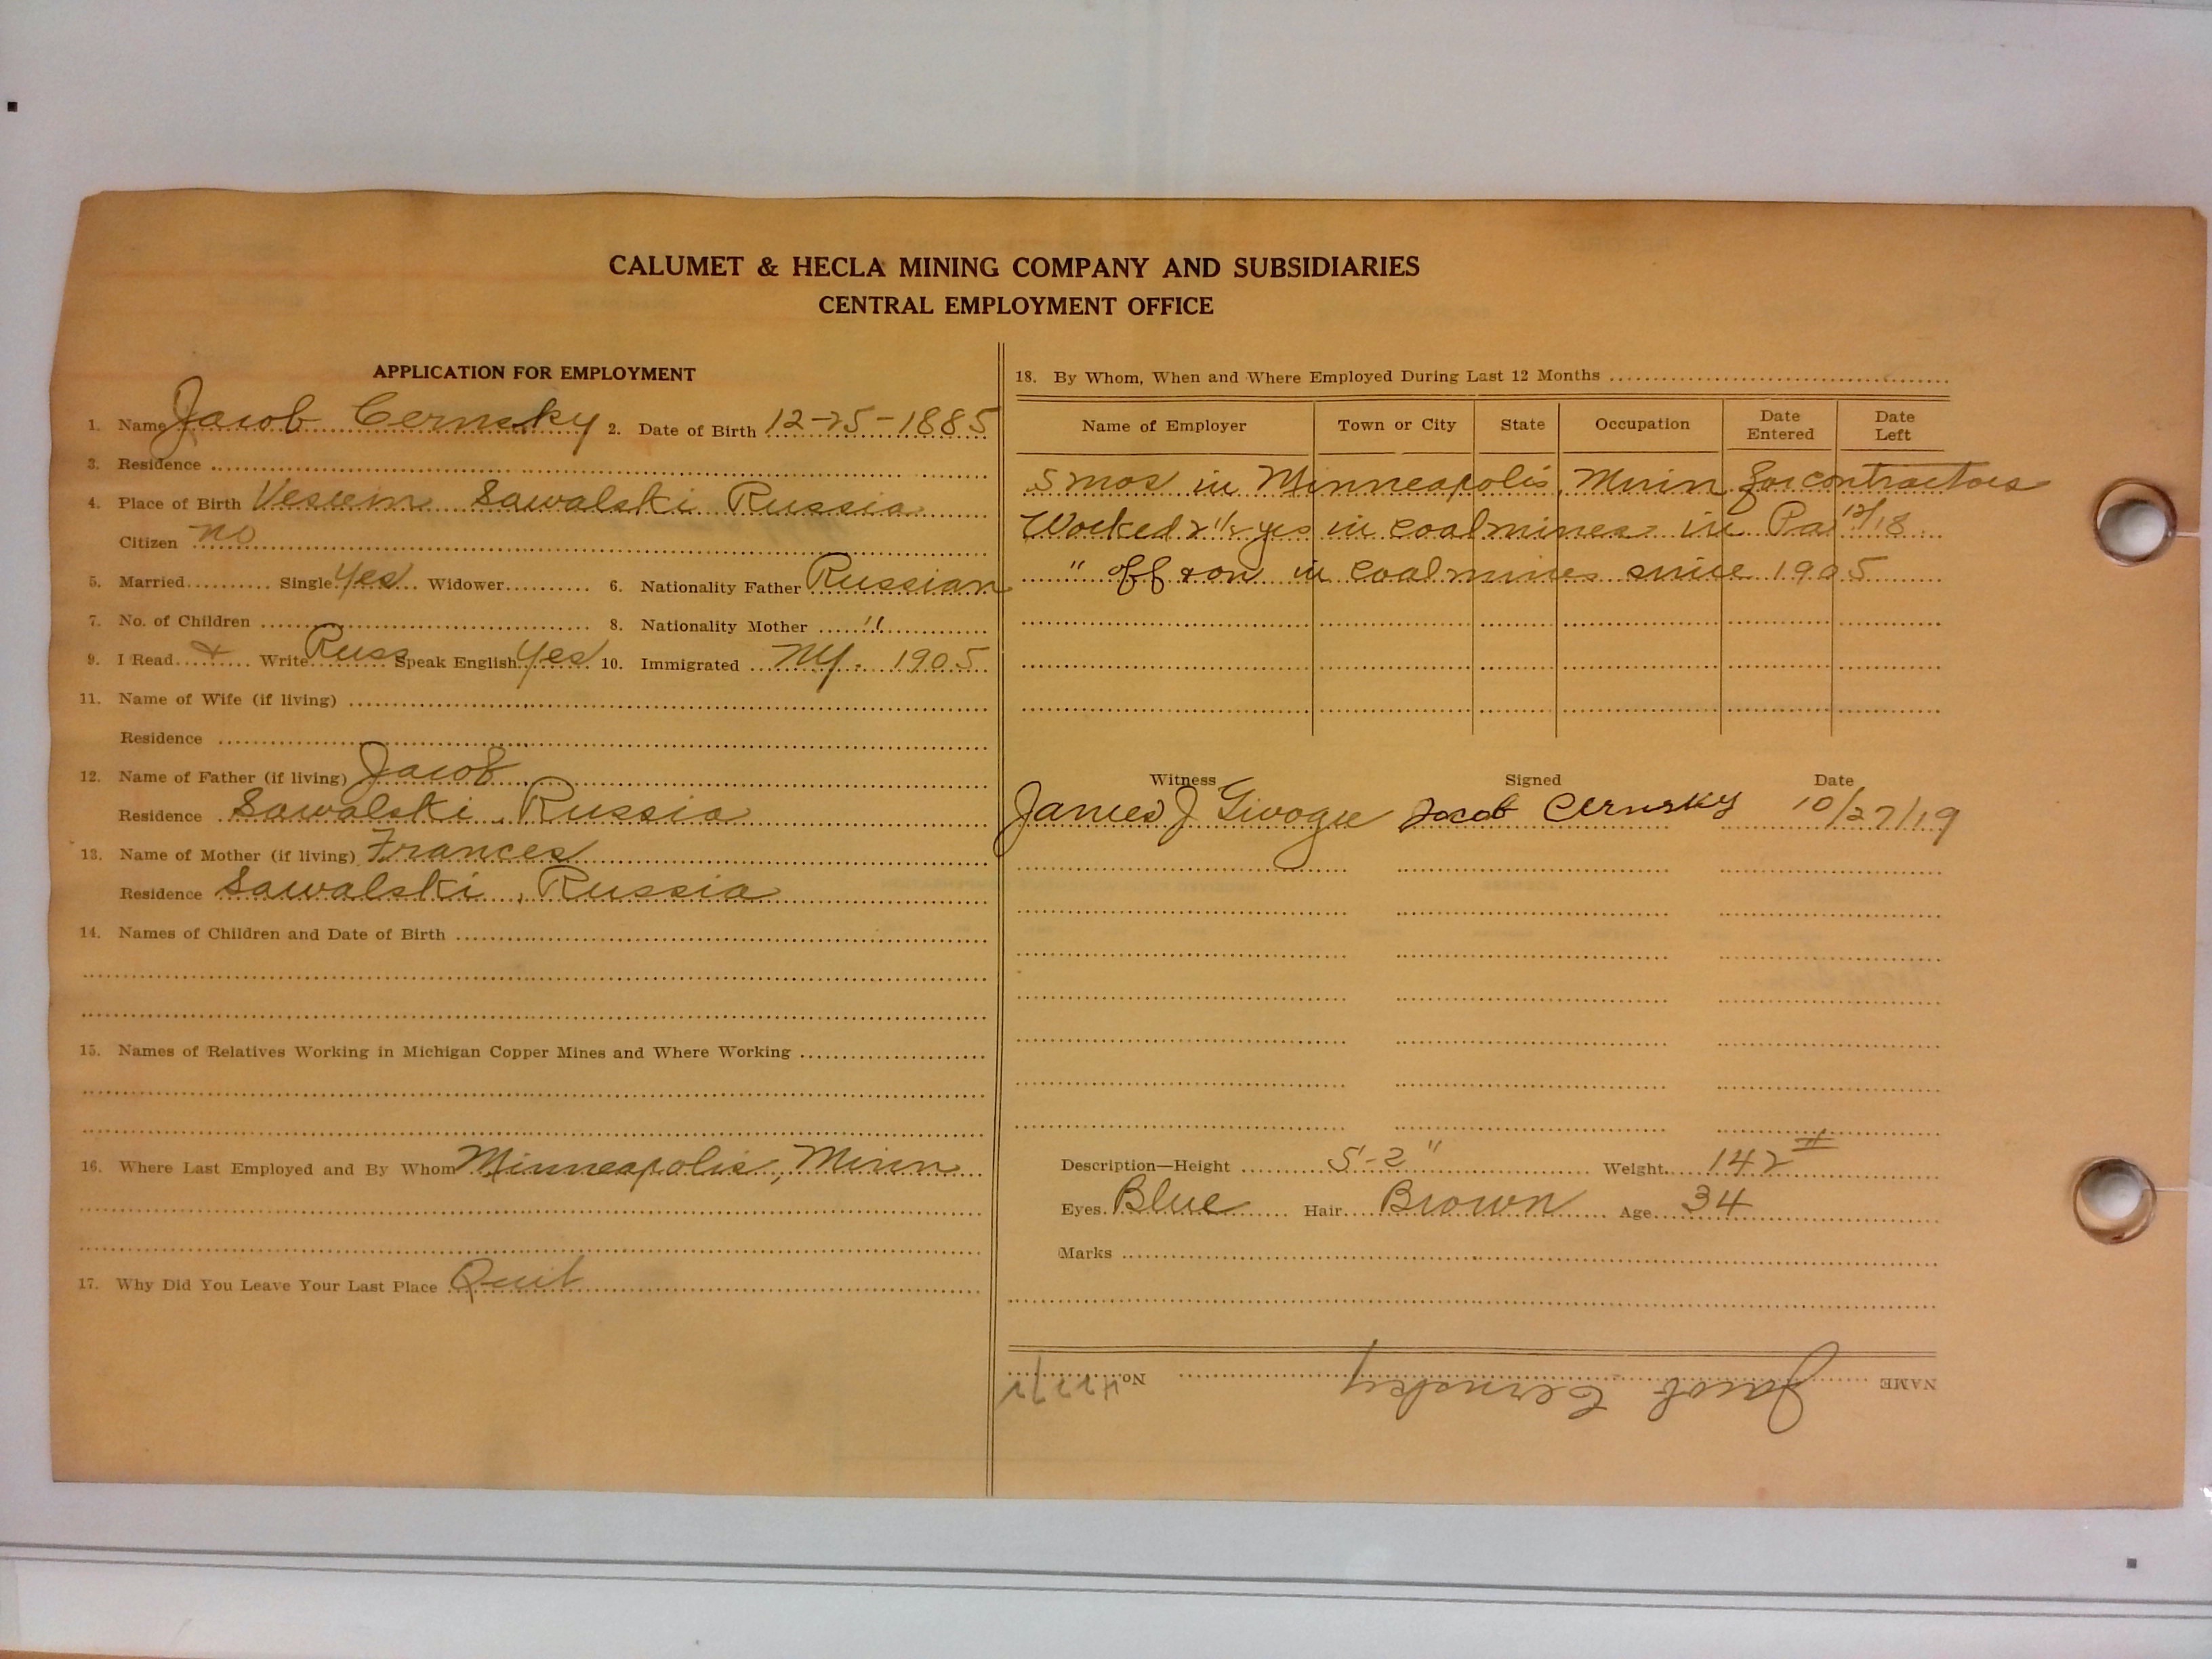 CALUMET & HECLA MINING COMPANY AND SUBSIDIARIES
CENTRAL EMPLOYMENT OFFICE
APPLICATION FOR EMPLOYMENT
1. Name Jacob Cernsky 2. Date of Birth 12-25-1885
3. Residence
4. Place of Birth Sawalski Russia
Citizen no
5. Married Single Yes Widower 6. Nationality Father Russian
7. No. of Children 8. Nationality Mother "
9. I Read & Write Russ Speak English Yes 10. Immigrated NY. 1905
11. Name of Wife (if living)
Residence
12. Name of Father (if living) Jacob
Residence Sawalski, Russia
13. Name of Mother (if living) Frances
Residence Sawalski, Russia
14. Names of Children and Date of Birth
15. Names of Relatives Working in Michigan Copper Mines and Where Working
16. Where Last Employed and By Whom Minneapolis, Minn
17. Why Did You Leave Your Last Place Quit
18. By Whom, When and Where Employed During Last 12 Months
Name of Employer Town or City State Occupation Date Entered Date Left
5 mos in Minneapolis, Minn for contractors
Worked 2 1/2 yrs in coal mines in Pa 12/18
" off & on in coal mines since 1905
Witness Signed Date
James J Jacob Cernsky 10/27/19
Description—Height 5'-2" Weight 142 #
Eyes Blue Hair Brown Age 34
Marks
NAME Jacob Cernsky No.